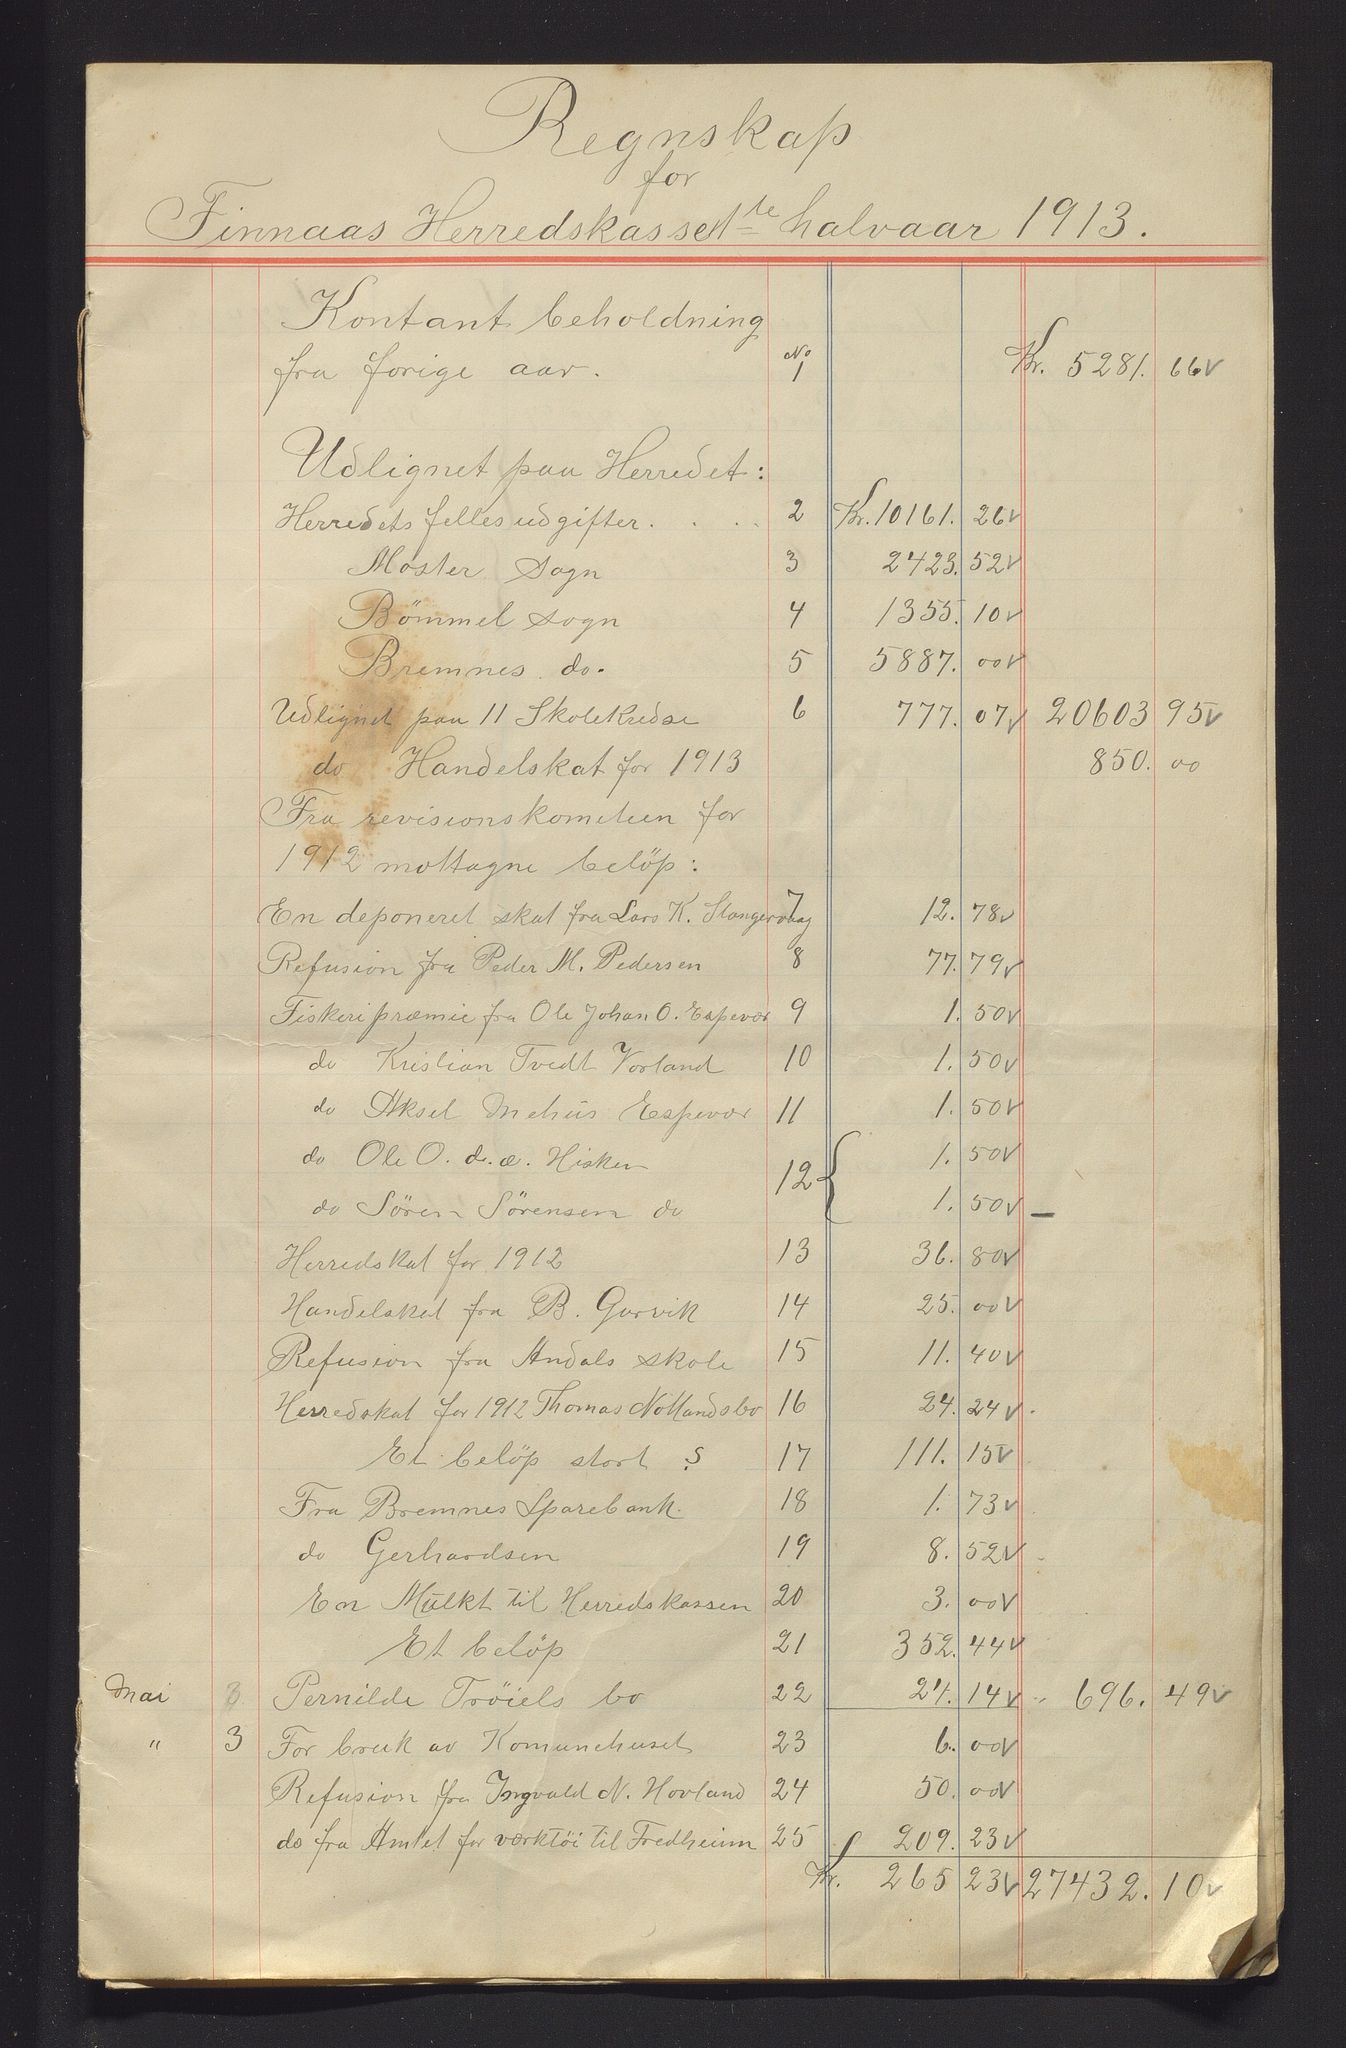 Regnskap
for
Finnaas Herredskasse 1te halvaar 1913.
Kontant beholdning
fra forige aar. No 1 Kr. 5281. 66
Udlignet paa Herredet:
Herredets fellesudgifter. . . . 2 Kr. 10161. 26
Moster Sogn 3 2423. 52
Bömmel sogn 4 1355. 10
Bremnes do. 5 5887. 00
Udlignet paa 11 Skolekredse 6 777. 07 20603 95
do Handelskat for 1913 850. 00
Fra revisionskomiteen for
1912 mottagne belöp:
En deponeret skat fra Lars K. Stangervaag 7 12. 78
Refusion fra Peder M. Pedersen 8 77. 79
Fiskeripræmie fra Ole Johan O. Espevær 9 1. 50
do Kristian Tvedt Vorland 10 1. 50
do Aksel Mehus Espevær 11 1. 50
do Ole O. d.æ. Hisken 12 1. 50
do Sören Sörensen do 1. 50
Herredskat for 1912 13 36. 80
Handelskat fra B. Gurvik 14 25. 00
Refusion fra Andals skole 15 11. 40
Herredskat for 1912 Thomas Nottlandsbo 16 24. 24
Et belöp stort ? 17 111. 15
Fra Bremnes Sparebank. 18 1. 73
do Gerhardsen 19 8. 52
En Mulkt til Herredskassen 20 3. 00
Et belöp 21 352. 44
Mai 3. Pernilde Tröiels bo 22 24. 14 " 696. 49
" 3 For bruk av Komunehuset 23 6. 00
Refusion fra Ingvald N. Hovland 24 50. 00
do fra Amtet for værktöi til Fredheim 25 209. 23
Kr. 265 23 27432. 10